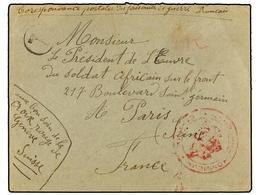 Correspondance postale des prisonniers de guerre Français
Monsieur
Le Président de L'Œuvre
du soldat africain sur le front
217 Boulevard Saint germain
à Paris
Seine
France
aux bon soin de la
Croix rouge de
Genève
Suisse